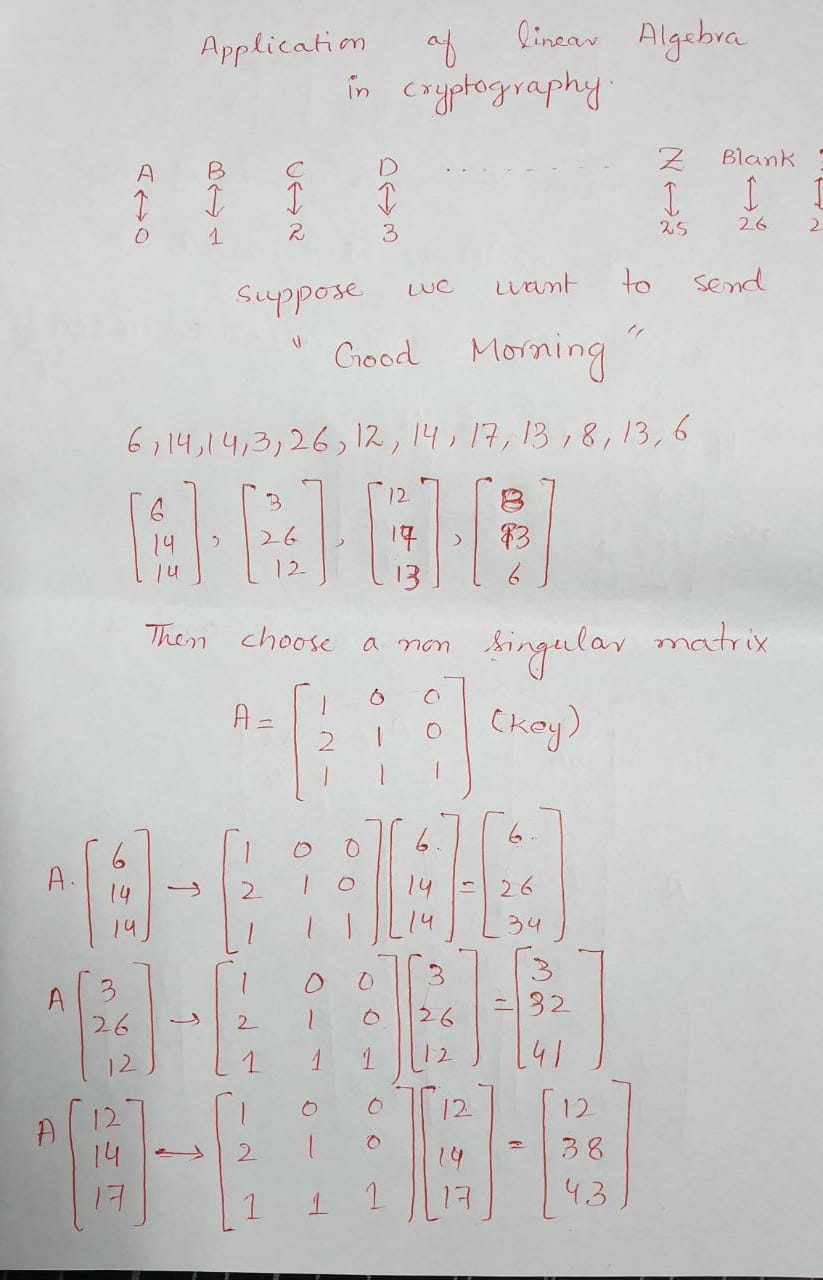 Application of linear Algebra
in cryptography.
A B C D ........ Z Blank
↕ ↕ ↕ ↕ ↕ ↕ ↕
0 1 2 3 25 26 2
suppose we want to send
" Good Morning "
6,14,14,3,26,12,14,17,13,8,13,6
[6 14 14], [3 26 12], [12 17 13], [8 13 6]
Then choose a non singular matrix
A = [1 0 0; 2 1 0; 1 1 1] (key)
A. [6 14 14] → [1 0 0; 2 1 0; 1 1 1] [6. 14 14] = [6. 26 34]
A [3 26 12] → [1 0 0; 2 1 0; 1 1 1] [3 26 12] = [3 32 41]
A [12 14 17] → [1 0 0; 2 1 0; 1 1 1] [12 14 17] = [12 38 43]